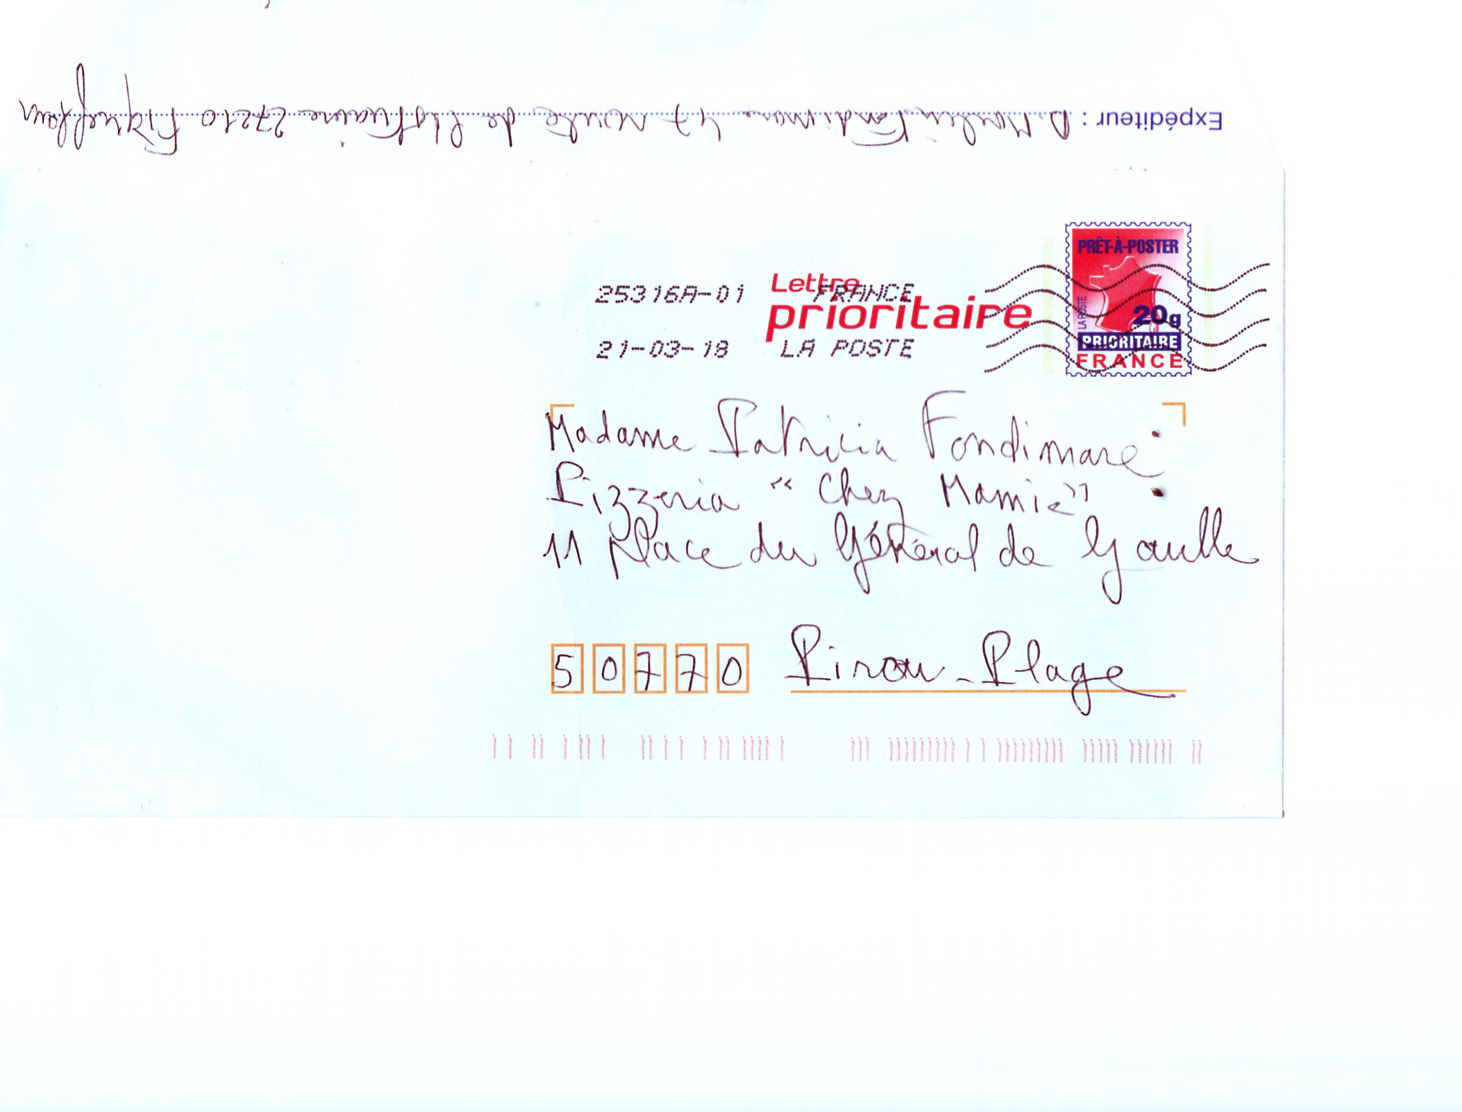 Expéditeur : D. Morlin Fondimare 47 route de l'Estuaire 27210 Fiquefleur
PRÊT-À-POSTER
LA POSTE
20g
PRIORITAIRE
FRANCE
25316A-01 FRANCE
Lettre
prioritaire
21-03-18 LA POSTE
Madame Patricia Fondimare
Pizzeria "Chez Mamie"
11 Place du Général de Gaulle
50770 Pirou-Plage